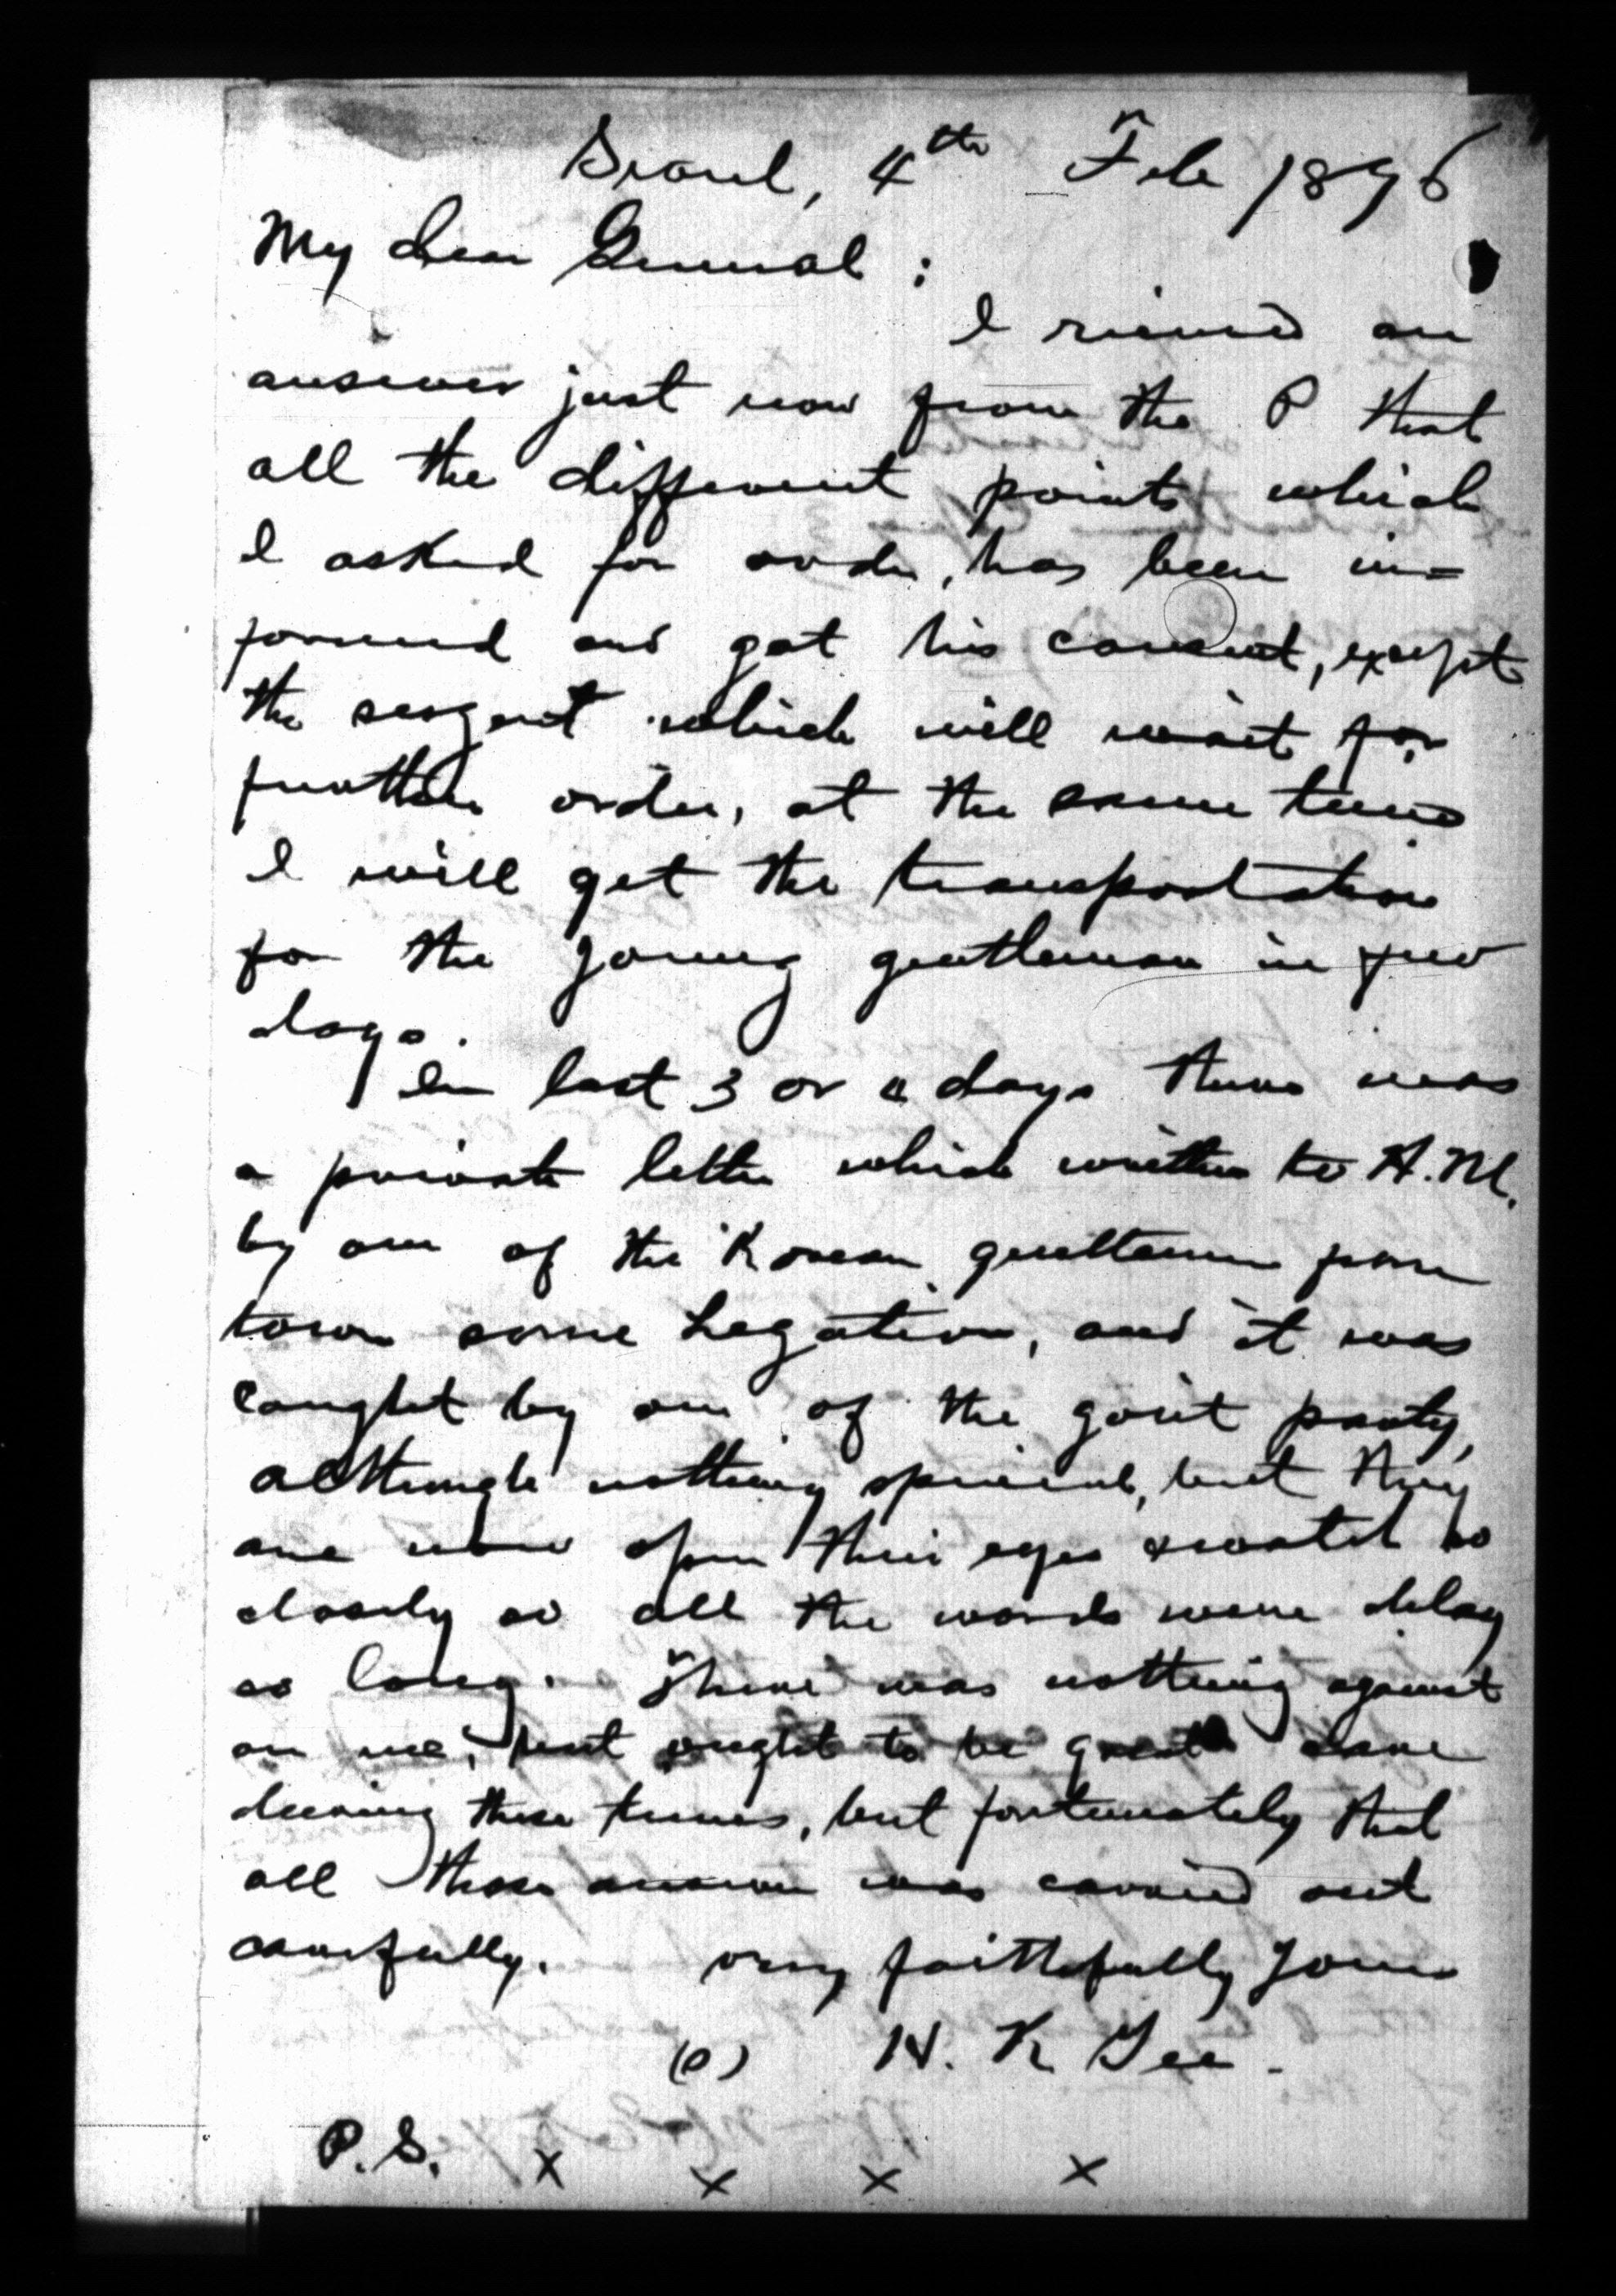 Seoul, 4th Feb 1896
My dear General :
I recieved an
answer just now from the P that
all the different points which
I asked for order, has been in=
formed and got his consent, except
the sergent which will wait for
further order, at the same time
I will get the transportation
for the young gentleman in few
days.
In last 3 or 4 days there was
a private letter which written to A.M.
by one of the Korean gentleman from
town some Legation, and it was
caught by one of the gov't party,
although nothing special, but they
are now open their eyes & watch so
closely so all the words were delay
so long. There was nothing against
on me, but ought to be great care
during these times, but fortunately that
all those answer was carried out
carefully. very faithfully yours
(s) H. K Yee.
P.S. x x x x